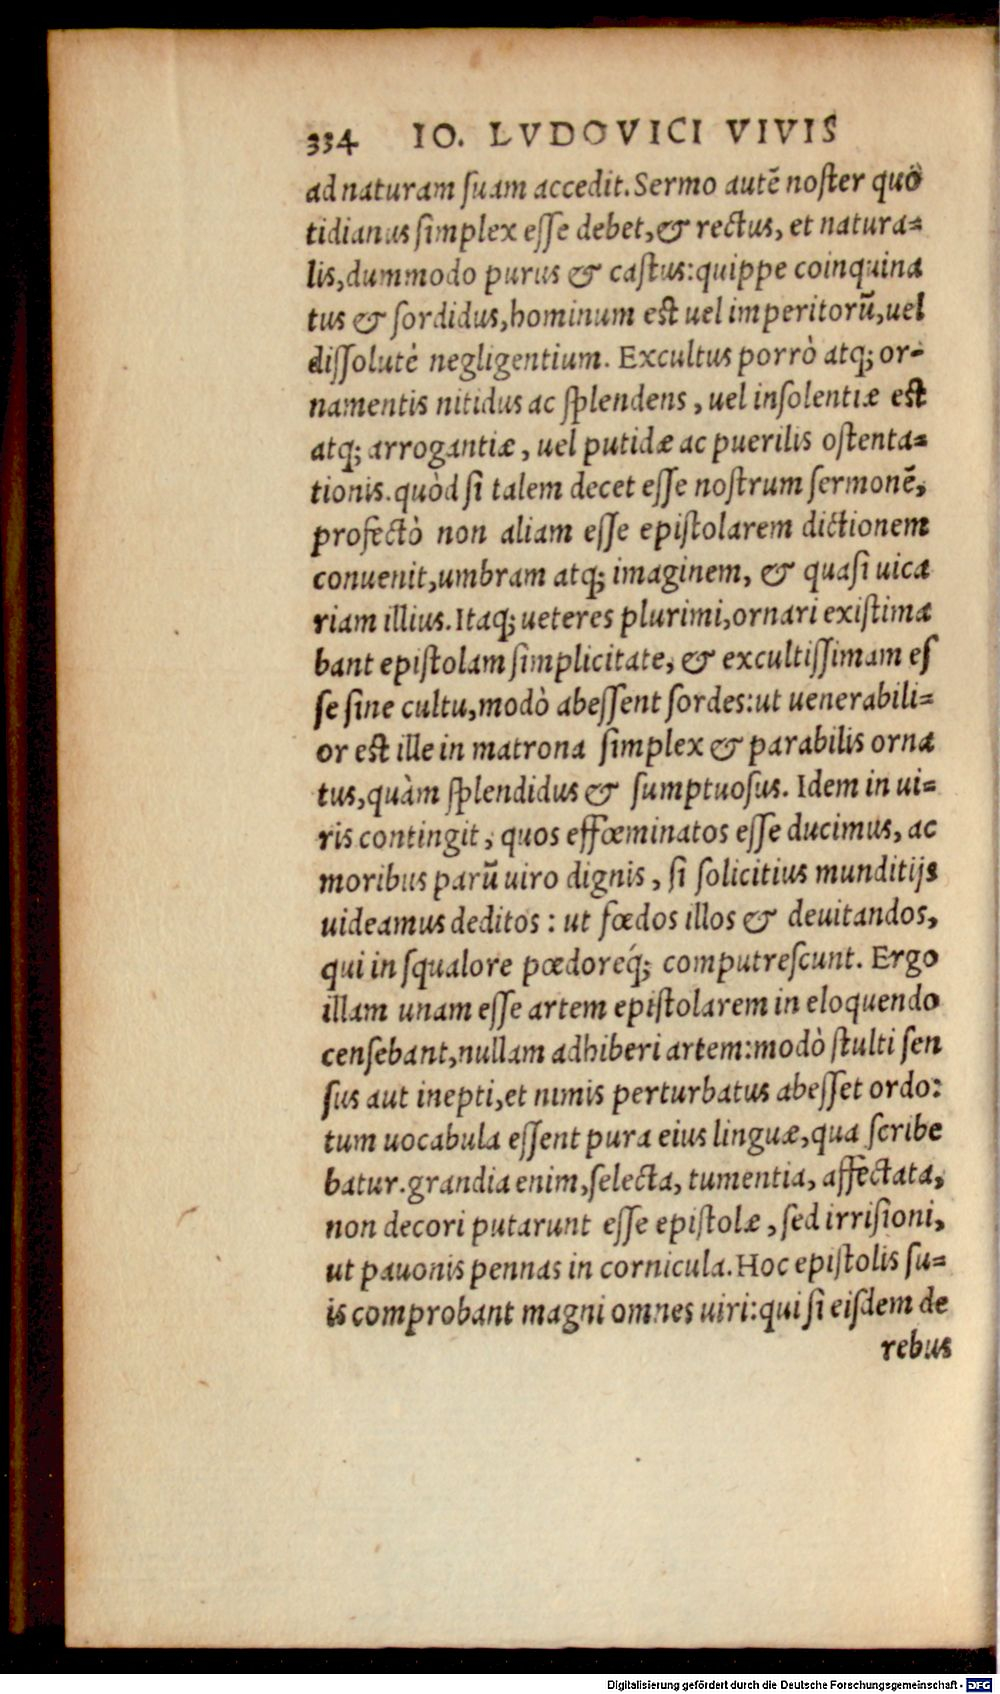 334 IO. LVDOVICI VIVIS
ad naturam ſuam accedit. Sermo autē noſter quo
tidianus ſimplex eſſe debet, & rectus, et natura=
lis, dummodo purus & caſtus: quippe coinquina
tus & ſordidus, hominum eſt uel imperitorū, uel
diſſolutè negligentium. Excultus porrò atq; or-
namentis nitidus ac ſplendens, uel inſolentiæ eſt
atq; arrogantiæ, uel putidæ ac puerilis oſtenta=
tionis. quòd ſi talem decet eſſe noſtrum ſermonē,
profectò non aliam eſſe epiſtolarem dictionem
conuenit, umbram atq; imaginem, & quaſi uica
riam illius. Itaq; ueteres plurimi, ornari exiſtima
bant epiſtolam ſimplicitate, & excultiſſimam eſ
ſe ſine cultu, modò abeſſent ſordes: ut uenerabili=
or eſt ille in matrona ſimplex & parabilis orna
tus, quàm ſplendidus & ſumptuoſus. Idem in ui=
ris contingit, quos effœminatos eſſe ducimus, ac
moribus parū uiro dignis, ſi ſolicitius munditijs
uideamus deditos: ut fœdos illos & deuitandos,
qui in ſqualore pœdoreq́; computreſcunt. Ergo
illam unam eſſe artem epiſtolarem in eloquendo
cenſebant, nullam adhiberi artem: modò ſtulti ſen
ſus aut inepti, et nimis perturbatus abeſſet ordo:
tum uocabula eſſent pura eius linguæ, qua ſcribe
batur. grandia enim, ſelecta, tumentia, affectata,
non decori putarunt eſſe epiſtolæ, ſed irriſioni,
ut pauonis pennas in cornicula. Hoc epiſtolis ſu=
is comprobant magni omnes uiri: qui ſi eiſdem de
rebus
Digitalisierung gefördert durch die Deutsche Forschungsgemeinschaft - DFG